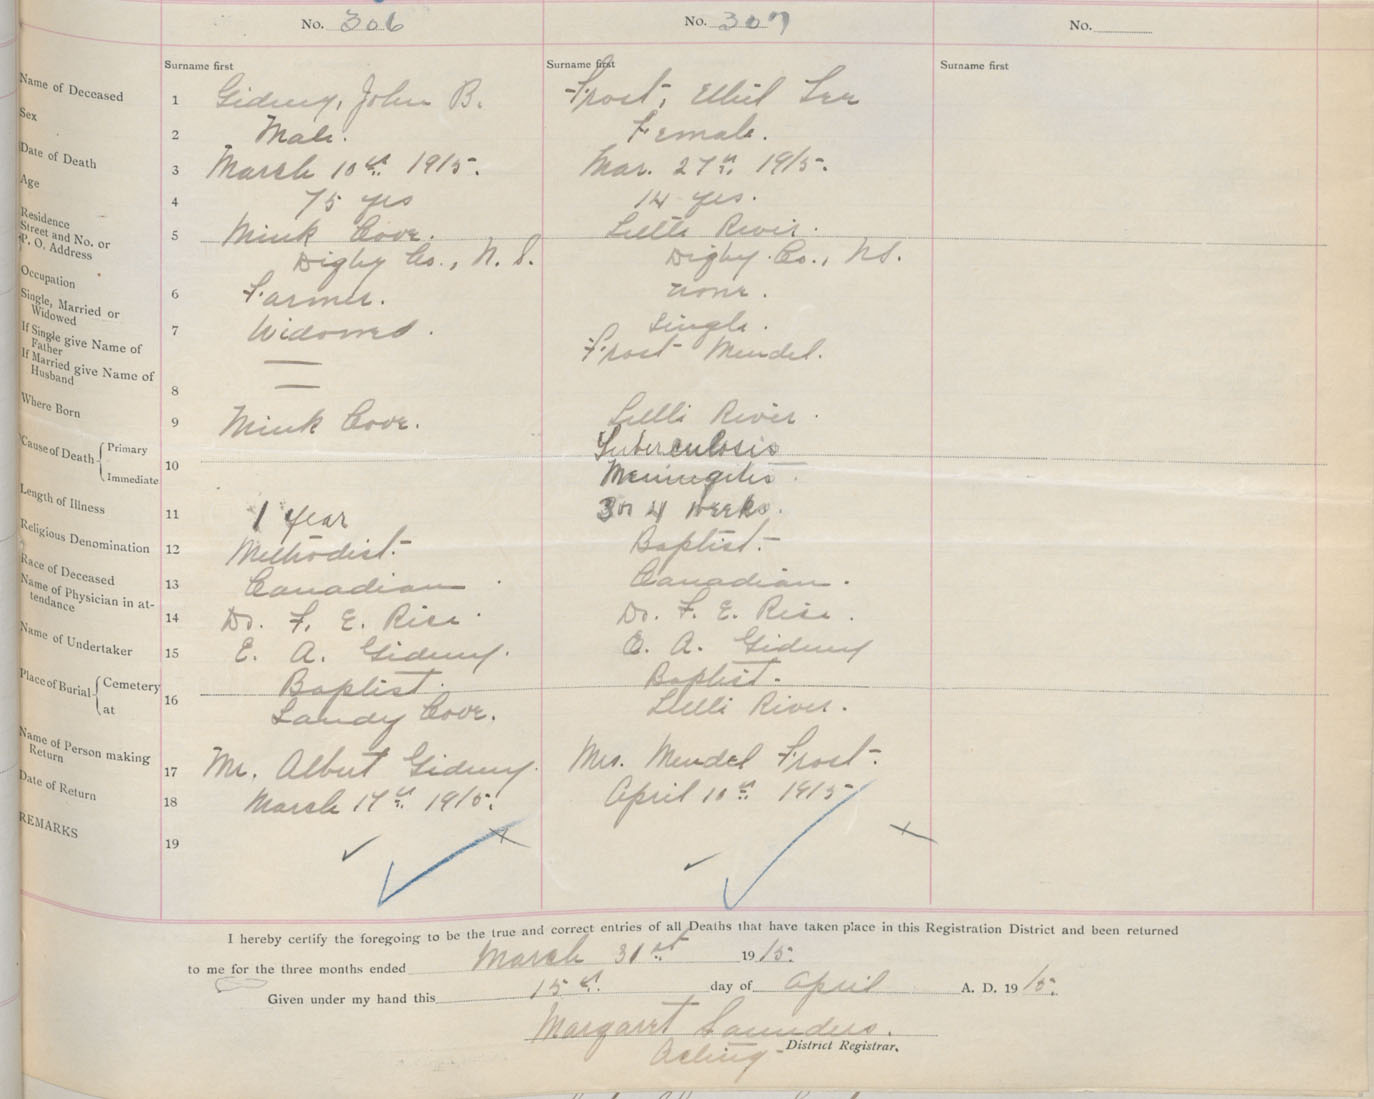 No. 306
No. 307
No.
Surname first
Surname first
Surname first
Name of Deceased 1 Gidney, John B. Frost, Ethel Lee
Sex 2 Male. Female.
Date of Death 3 March 10th 1915. Mar. 27th 1915.
Age 4 75 yrs 14 yrs.
Residence
Street and No. or
P. O. Address
5 Mink Cove. Little River.
Digby Co., N. S. Digby Co., N.S.
Occupation 6 Farmer. none.
Single, Married or
Widowed
7 Widowed. Single.
If Single give Name of
Father
Frost Mendel.
If Married give Name of
Husband
8
Where Born 9 Mink Cove. Little River.
Cause of Death Primary Tuberculosis
10
Immediate Meningitis.
Length of Illness 11 1 Year 3 or 4 weeks.
Religious Denomination 12 Methodist. Baptist.
Race of Deceased 13 Canadian. Canadian.
Name of Physician in at-
tendance
14 Dr. F. E. Rice. Dr. F. E. Rice.
Name of Undertaker 15 E. A. Gidney. E. A. Gidney
Place of Burial Cemetery Baptist. Baptist.
16
at Sandy Cove. Little River.
Name of Person making
Return
17 Mr. Albert Gidney. Mrs. Mendel Frost.
Date of Return 18 March 17th 1915. April 10th 1915
REMARKS 19
I hereby certify the foregoing to be the true and correct entries of all Deaths that have taken place in this Registration District and been returned
to me for the three months ended March 31st 1915.
Given under my hand this 15th day of April A. D. 1915.
Margaret Saunders.
Acting District Registrar.